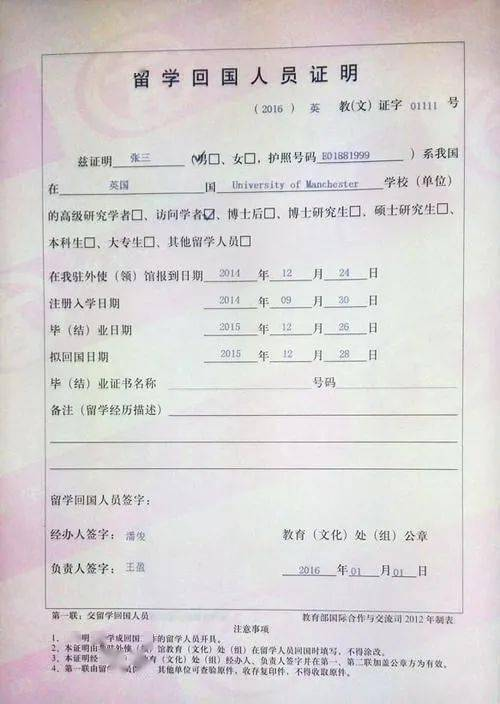 留学回国人员证明
（2016）英 教(文)证字 01111 号
兹证明 张三 （男□、女□，护照号码 E01881999 ）系我国
在 英国 国 University of Manchester 学校（单位）
的高级研究学者□、访问学者☑、博士后□、博士研究生□、硕士研究生□、
本科生□、大专生□、其他留学人员□
在我驻外使（领）馆报到日期 2014 年 12 月 24 日
注册入学日期 2014 年 09 月 30 日
毕（结）业日期 2015 年 12 月 26 日
拟回国日期 2015 年 12 月 28 日
毕（结）业证书名称 号码
备注（留学经历描述）
留学回国人员签字：
经办人签字：潘俊 教育（文化）处（组）公章
负责人签字：王盈 2016 年 01 月 01 日
第一联：交留学回国人员 教育部国际合作与交流司 2012 年制表
注意事项
1、 明 学成回国 的留学人员开具。
2、本证明由 驻外使（领）馆教育（文化）处（组）在留学人员回国时填写，不得涂改。
3、本证明经 教育（文化）处（组）经办人、负责人签字并在第一、第二联加盖公章方为有效。
4、第一联由留学人员保 其他单位可查验原件，收存复印件，不得收取原件。